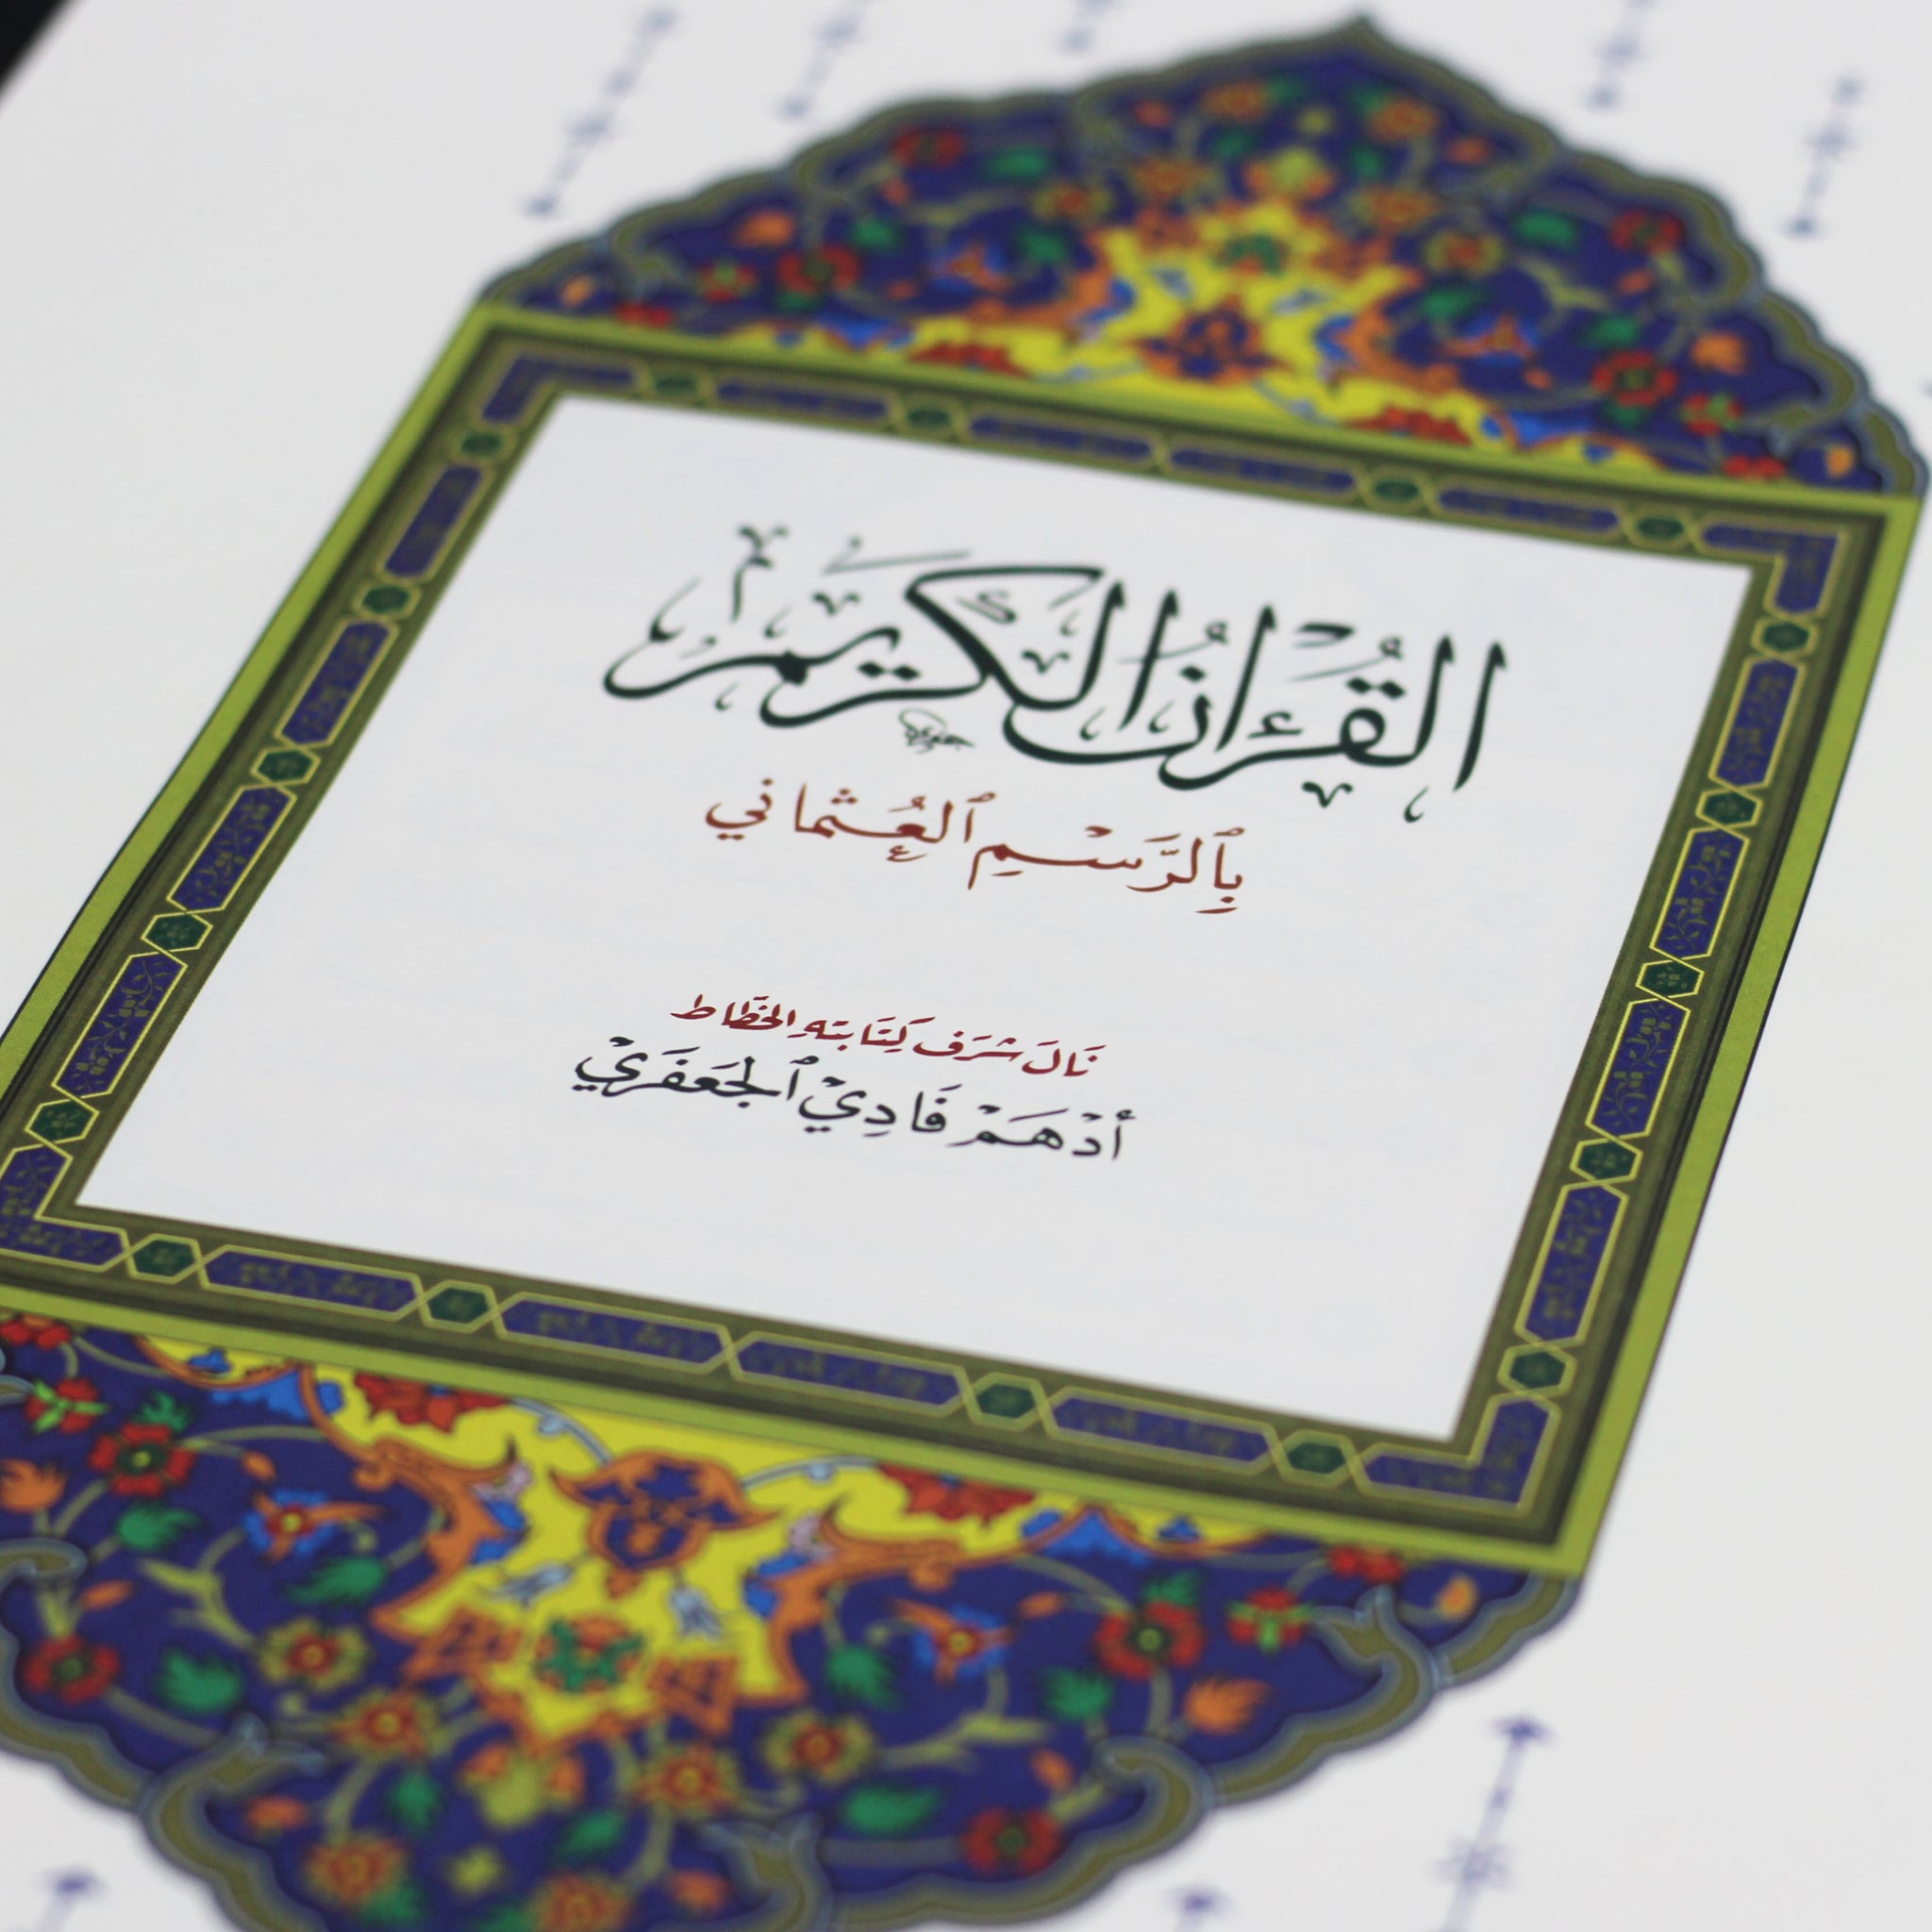 القُرْءَانُ الكَرِيم
بِٱلرَّسْمِ ٱلعُثماني
نَالَ شَرَف كِتَابتهِ الخَطَّاط
أدْهَمْ فَادِيْ ٱلجَعْفَرِيْ